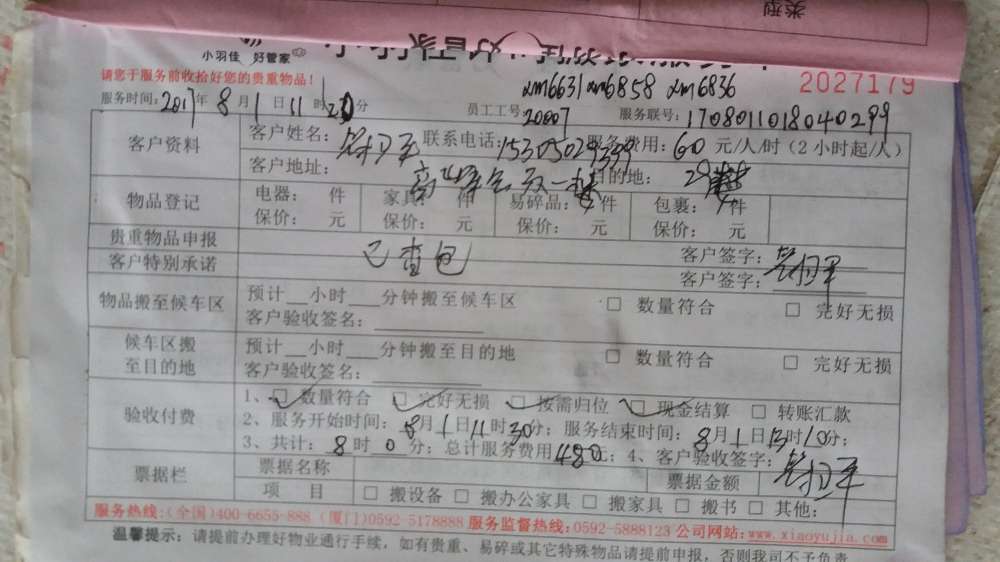 类型
小羽佳 好管家
请您于服务前收拾好您的贵重物品！
xm6631 xm6858 xm6836
2027179
服务时间: 2017年 8月 1日 11时 30分 员工工号 20007 服务联号: 1708011018040299
客户资料
客户姓名: 联系电话: 服务费用: 60 元/人/时（2 小时起/人）
客户地址: 目的地:
物品登记
电器: 件 家具: 件 易碎品: 件 包裹: 件
保价: 元 保价: 元 保价: 元 保价: 元
贵重物品申报 已查包 客户签字:
客户特别承诺 客户签字:
物品搬至候车区
预计__小时___分钟搬至候车区 □ 数量符合 □ 完好无损
客户验收签名:
候车区搬至目的地
预计__小时___分钟搬至目的地 □ 数量符合 □ 完好无损
客户验收签名:
验收付费
1、□ 数量符合 □ 完好无损 □ 按需归位 □ 现金结算 □ 转账汇款
2、服务开始时间: 8月1日11时30分; 服务结束时间: 8月1日13时10分;
3、共计: 8 时 0 分; 总计服务费用 480元; 4、客户验收签字:
票据栏
票据名称 票据金额
项 目 □ 搬设备 □ 搬办公家具 □ 搬家具 □ 搬书 □ 其他:
服务热线:(全国)400-6655-888 (厦门)0592-5178888 服务监督热线:0592-5888123 公司网站:www.xiaoyujia.com
温馨提示: 请提前办理好物业通行手续, 如有贵重、易碎或其它特殊物品请提前申报, 否则我司不予负责